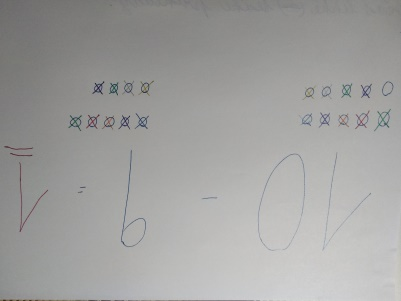 10 - 9 = 1